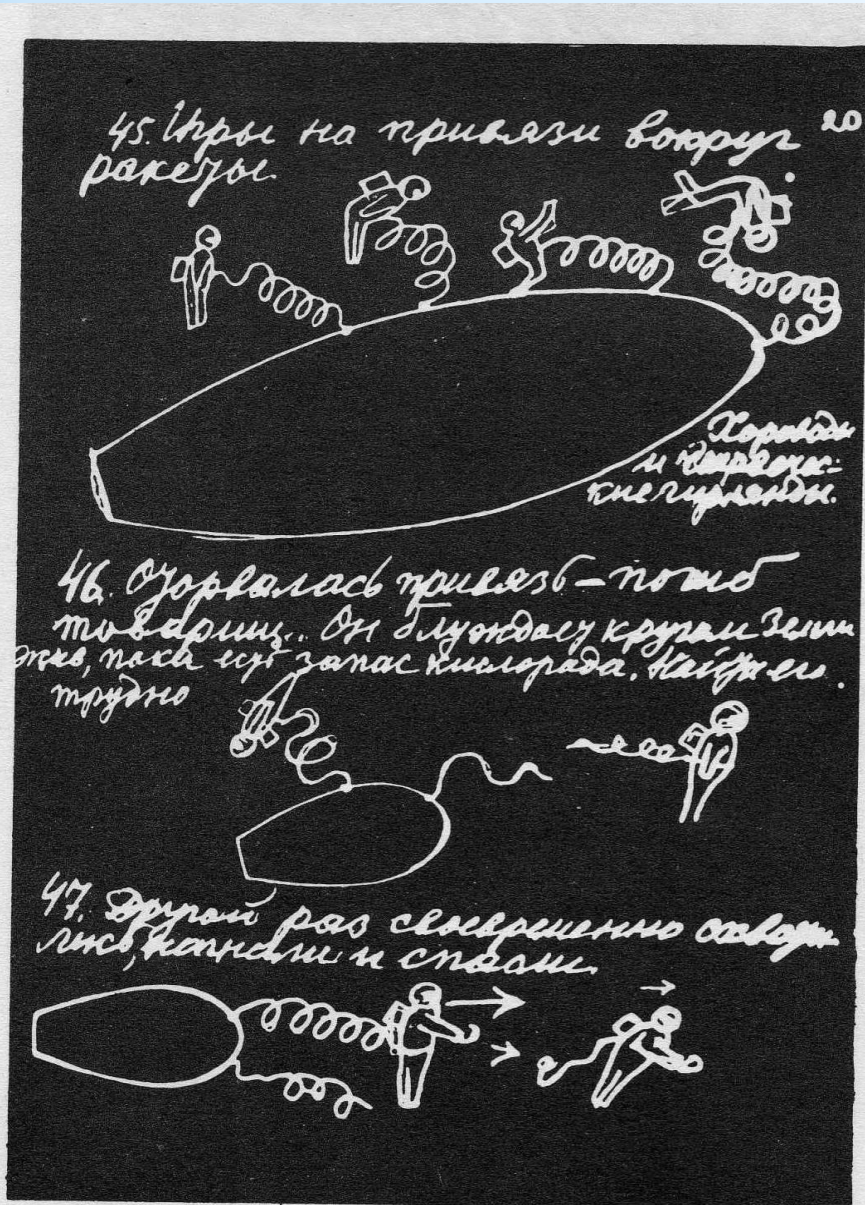 45. Игры на привязи вокруг
20
ракеты.
Хороводы
и
гирлянды.
46. Оторвалась привязь – погиб
товарищ.. Он блуждает кругом Земли
жив, пока есть запас кислорода. Найти его
трудно.
47. Другой раз своевременно схвати-
лись, нагнали и спасли.